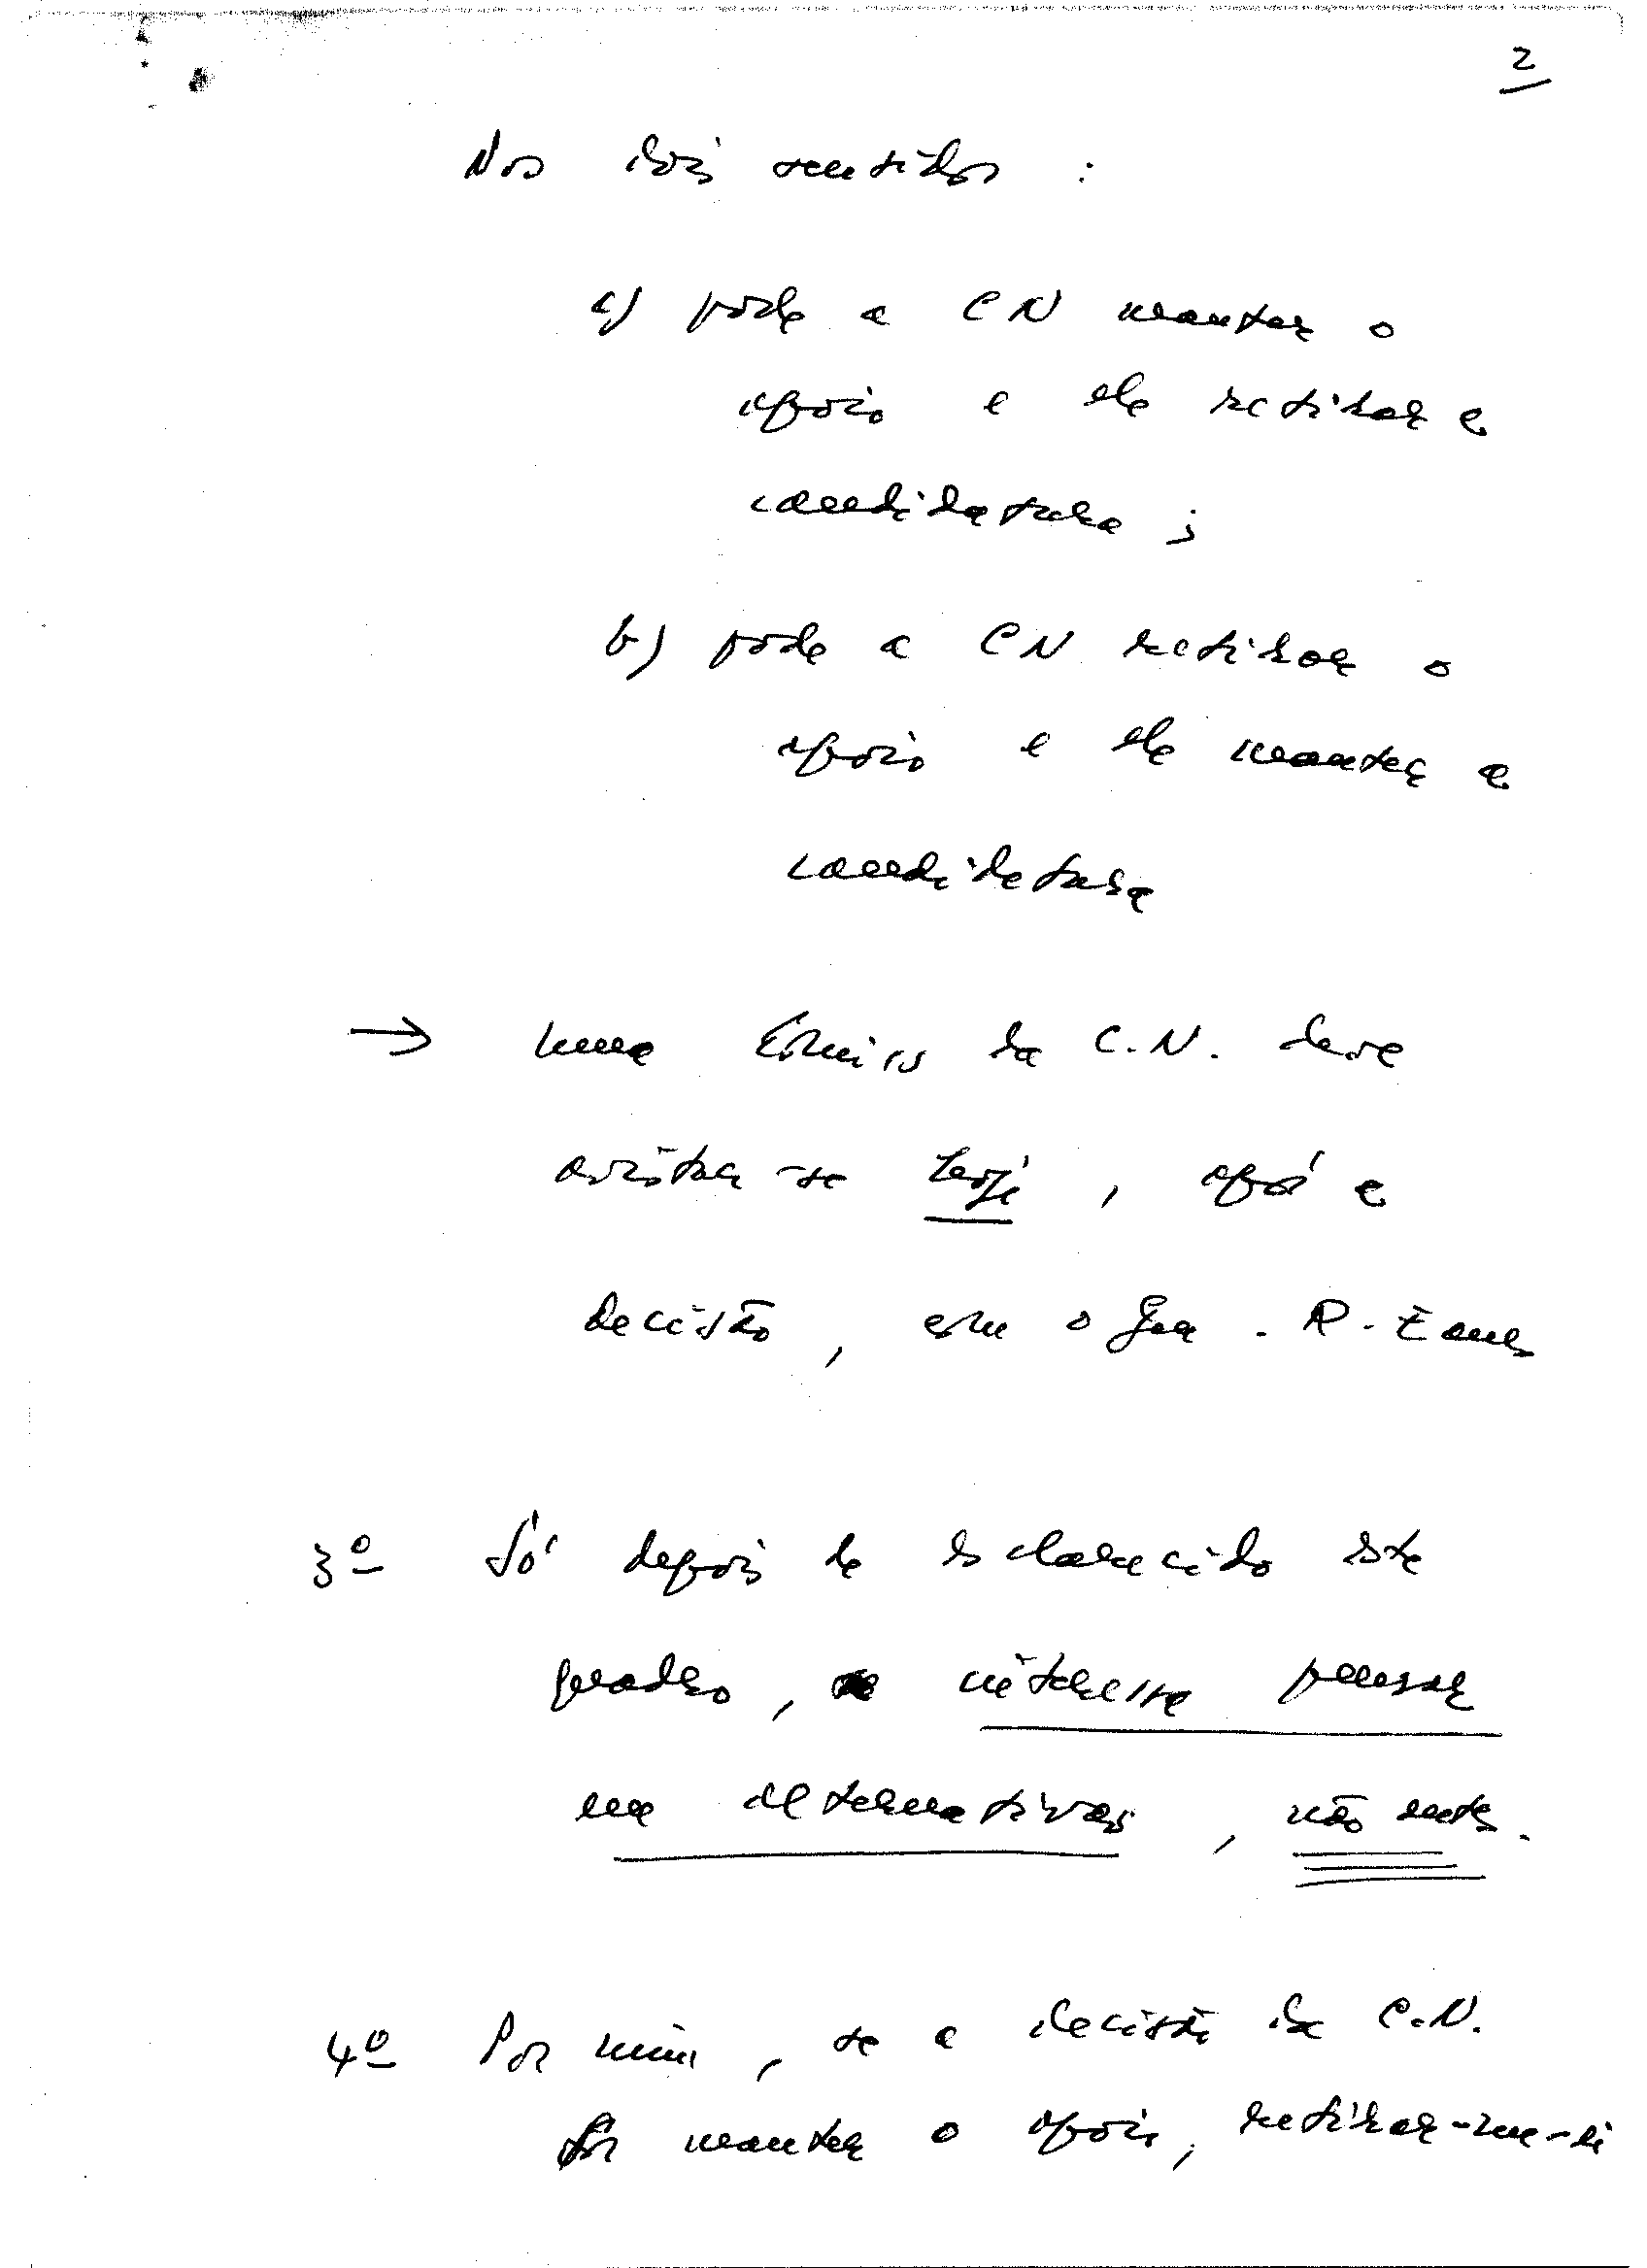 2
Nos dois sentidos :
a) pode a CN manter o
apoio e ele retirar a
candidatura ;
b) pode a CN retirar o
apoio e ele manter a
candidatura
→ uma Comissão da C.N. deve
avistar-se hoje, após a
decisão, com o Gen. R. Eanes
3º Só depois de esclarecido este
quadro, interessa pensar
em alternativas, não antes.
4º Por mim, se a decisão da C.N.
for manter o apoio, retirar-me-ei